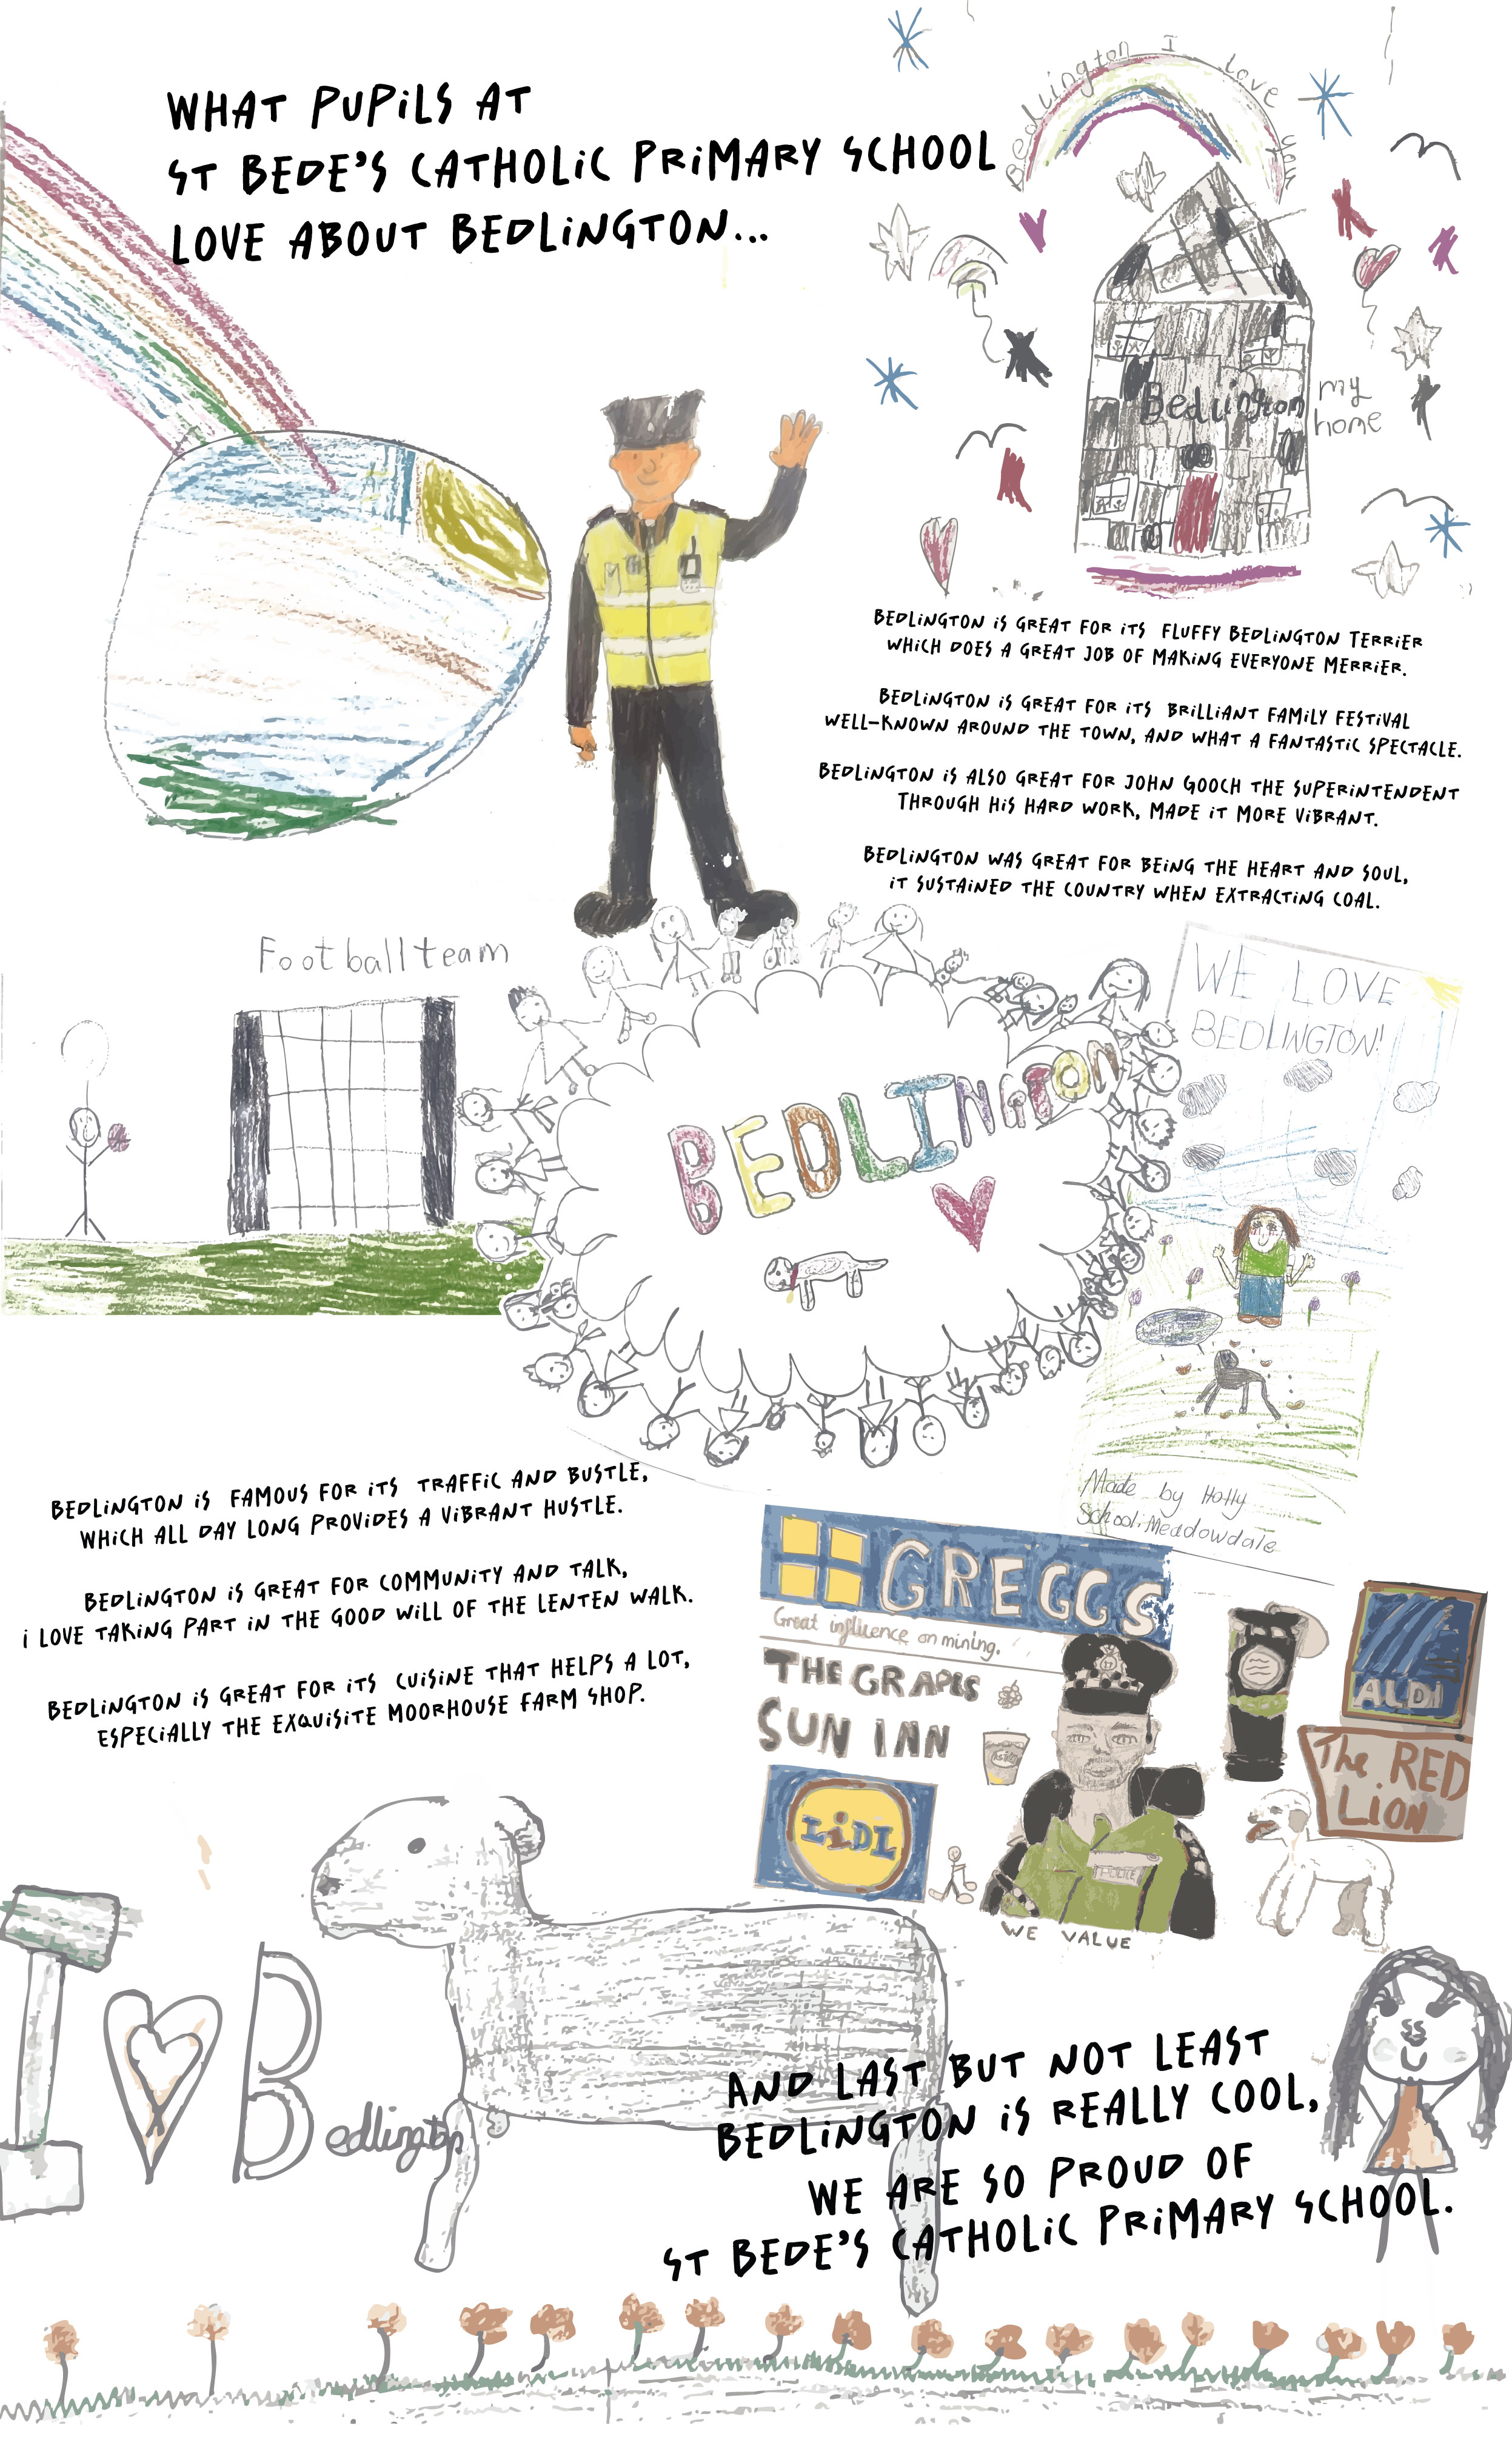 WHAT PUPILS AT
ST BEDE'S CATHOLIC PRIMARY SCHOOL
LOVE ABOUT BEDLINGTON...
Bedlington I love you
Bedlington
my
home
BEDLINGTON IS GREAT FOR ITS FLUFFY BEDLINGTON TERRIER
WHICH DOES A GREAT JOB OF MAKING EVERYONE MERRIER.
BEDLINGTON IS GREAT FOR ITS BRILLIANT FAMILY FESTIVAL
WELL-KNOWN AROUND THE TOWN, AND WHAT A FANTASTIC SPECTACLE.
BEDLINGTON IS ALSO GREAT FOR JOHN GOOCH THE SUPERINTENDENT
THROUGH HIS HARD WORK, MADE IT MORE VIBRANT.
BEDLINGTON WAS GREAT FOR BEING THE HEART AND SOUL,
IT SUSTAINED THE COUNTRY WHEN EXTRACTING COAL.
Football team
BEDLINGTON
WE LOVE
BEDLINGTON!
Made by Holly
School: Meadowdale
BEDLINGTON IS FAMOUS FOR ITS TRAFFIC AND BUSTLE,
WHICH ALL DAY LONG PROVIDES A VIBRANT HUSTLE.
BEDLINGTON IS GREAT FOR COMMUNITY AND TALK,
I LOVE TAKING PART IN THE GOOD WILL OF THE LENTEN WALK.
BEDLINGTON IS GREAT FOR ITS CUISINE THAT HELPS A LOT,
ESPECIALLY THE EXQUISITE MOORHOUSE FARM SHOP.
GREGGS
Great influence on mining.
THE GRAPES
SUN INN
LiDL
POLICE
WE VALUE
ALDI
The RED
LION
I
Bedlington
AND LAST BUT NOT LEAST
BEDLINGTON IS REALLY COOL,
WE ARE SO PROUD OF
ST BEDE'S CATHOLIC PRIMARY SCHOOL.